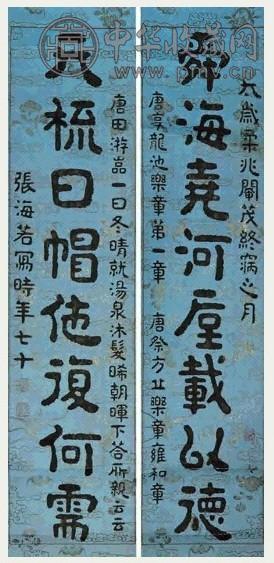 中华收藏网
太歲柔兆閹茂終寎之月
舜海堯河垕載以德
唐享龍池樂章第一章 唐祭方丘樂章雍和章
唐田游巖一日冬晴就湯泉沐髮晞朝暉下答所親云云
天梳日帽他復何需
張海若寫時年七十